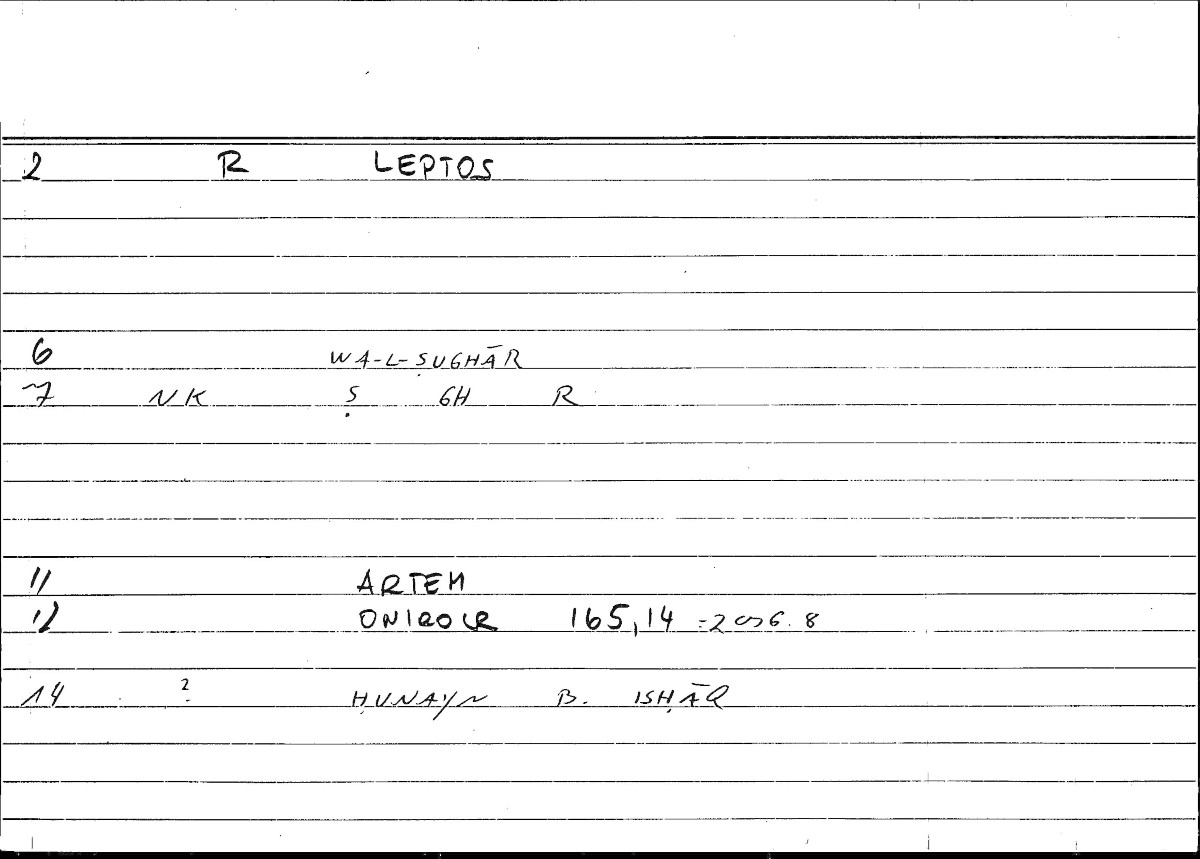 2 R LEPTOS
6 WA-L-ṢUGHĀR
7 NK Ṣ GH R
11 ARTEM
12 ONIROCR 165,14
14 ? ḤUNAYN B. ISḤĀQ